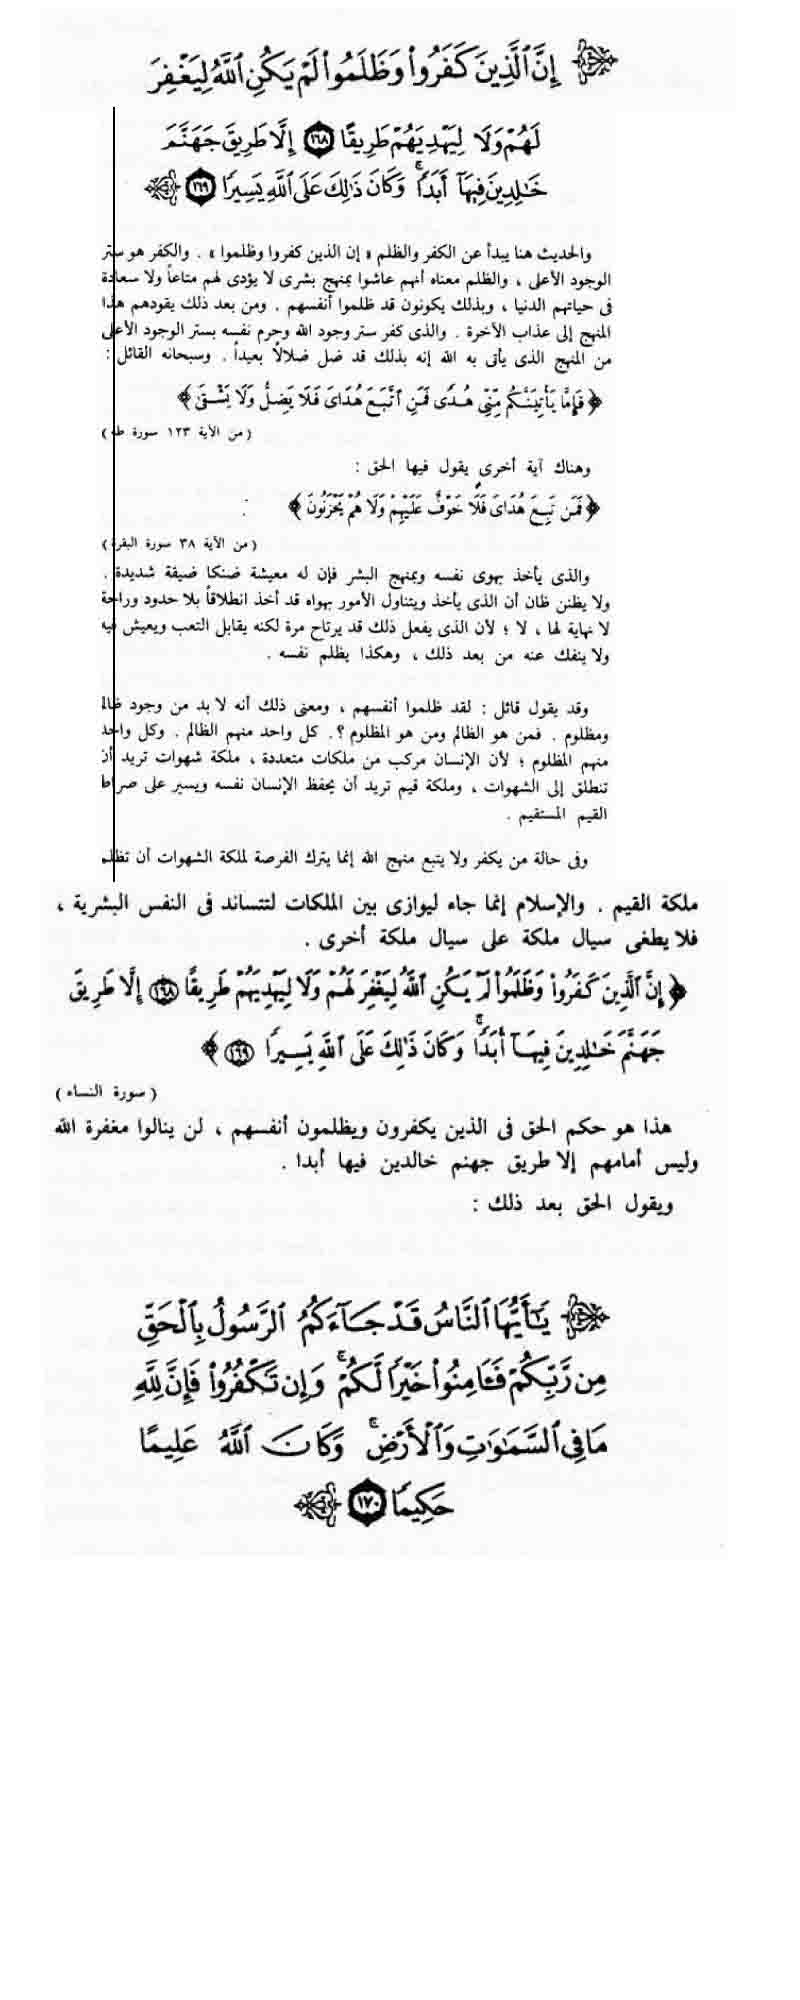 إِنَّ ٱلَّذِينَ كَفَرُوا۟ وَظَلَمُوا۟ لَمْ يَكُنِ ٱللَّهُ لِيَغْفِرَ
لَهُمْ وَلَا لِيَهْدِيَهُمْ طَرِيقًا ١٦٨ إِلَّا طَرِيقَ جَهَنَّمَ
خَٰلِدِينَ فِيهَآ أَبَدًا ۚ وَكَانَ ذَٰلِكَ عَلَى ٱللَّهِ يَسِيرًا ١٦٩
والحديث هنا يبدأ عن الكفر والظلم « إن الذين كفروا وظلموا » . والكفر هو ستر
الوجود الأعلى ، والظلم معناه أنهم عاشوا بمنهج بشرى لا يؤدى لهم متاعاً ولا سعادة
فى حياتهم الدنيا ، وبذلك يكونون قد ظلموا أنفسهم . ومن بعد ذلك يقودهم هذا
المنهج إلى عذاب الآخرة . والذى كفر ستر وجود الله وحرم نفسه بستر الوجود الأعلى
من المنهج الذى يأتى به الله إنه بذلك قد ضل ضلالاً بعيداً . وسبحانه القائل :
﴿ فَإِمَّا يَأْتِيَنَّكُم مِّنِّى هُدًى فَمَنِ ٱتَّبَعَ هُدَاىَ فَلَا يَضِلُّ وَلَا يَشْقَىٰ ﴾
( من الآية ١٢٣ سورة طه )
وهناك آية أخرى يقول فيها الحق :
﴿ فَمَن تَبِعَ هُدَاىَ فَلَا خَوْفٌ عَلَيْهِمْ وَلَا هُمْ يَحْزَنُونَ ﴾
( من الآية ٣٨ سورة البقرة )
والذى يأخذ بهوى نفسه وبمنهج البشر فإن له معيشة ضنكا ضيقة شديدة .
ولا يظنن ظان أن الذى يأخذ ويتناول الأمور بهواه قد أخذ انطلاقاً بلا حدود وراحة
لا نهاية لها ، لا ؛ لأن الذى يفعل ذلك قد يرتاح مرة لكنه يقابل التعب ويعيش فيه
ولا ينفك عنه من بعد ذلك ، وهكذا يظلم نفسه .
وقد يقول قائل : لقد ظلموا أنفسهم ، ومعنى ذلك أنه لا بد من وجود ظالم
ومظلوم . فمن هو الظالم ومن هو المظلوم ؟. كل واحد منهم الظالم . وكل واحد
منهم المظلوم ؛ لأن الإنسان مركب من ملكات متعددة ، ملكة شهوات تريد أن
تنطلق إلى الشهوات ، وملكة قيم تريد أن يحفظ الإنسان نفسه ويسير على صراط
القيم المستقيم .
وفى حالة من يكفر ولا يتبع منهج الله إنما يترك الفرصة لملكة الشهوات أن تظلم
ملكة القيم . والإسلام إنما جاء ليوازى بين الملكات لتتساند فى النفس البشرية ،
فلا يطغى سيال ملكة على سيال ملكة أخرى .
﴿ إِنَّ ٱلَّذِينَ كَفَرُوا۟ وَظَلَمُوا۟ لَمْ يَكُنِ ٱللَّهُ لِيَغْفِرَ لَهُمْ وَلَا لِيَهْدِيَهُمْ طَرِيقًا ١٦٨ إِلَّا طَرِيقَ
جَهَنَّمَ خَٰلِدِينَ فِيهَآ أَبَدًا ۚ وَكَانَ ذَٰلِكَ عَلَى ٱللَّهِ يَسِيرًا ١٦٩ ﴾
( سورة النساء )
هذا هو حكم الحق فى الذين يكفرون ويظلمون أنفسهم ، لن ينالوا مغفرة الله
وليس أمامهم إلا طريق جهنم خالدين فيها أبدا .
ويقول الحق بعد ذلك :
يَٰٓأَيُّهَا ٱلنَّاسُ قَدْ جَآءَكُمُ ٱلرَّسُولُ بِٱلْحَقِّ
مِن رَّبِّكُمْ فَـَٔامِنُوا۟ خَيْرًا لَّكُمْ ۚ وَإِن تَكْفُرُوا۟ فَإِنَّ لِلَّهِ
مَا فِى ٱلسَّمَٰوَٰتِ وَٱلْأَرْضِ ۚ وَكَانَ ٱللَّهُ عَلِيمًا
حَكِيمًا ١٧٠